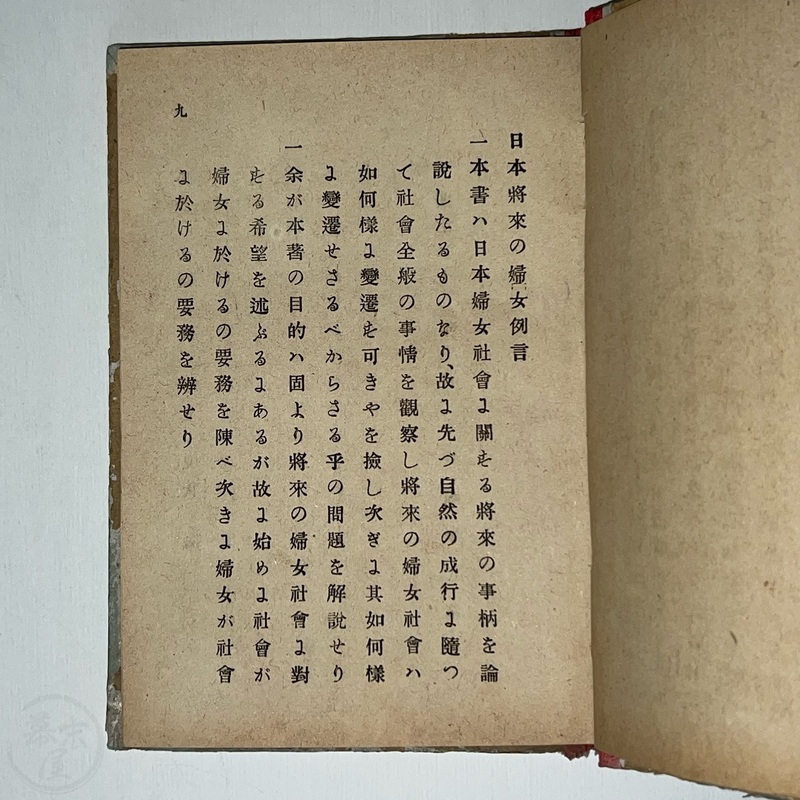 日本將來の婦女例言
一本書ハ日本婦女社會に關する將來の事柄を論
說したるものなり、故に先づ自然の成行に隨つ
て社會全般の事情を觀察し將來の婦女社會ハ
如何樣に變遷す可きやを撿し次ぎに其如何樣
に變遷せさるべからさる乎の問題を解說せり
一余が本著の目的ハ固より將來の婦女社會に對
する希望を述ぶるにあるが故に始めに社會が
婦女に於けるの要務を陳べ次きに婦女が社會
に於けるの要務を辨せり
九
幕末屋